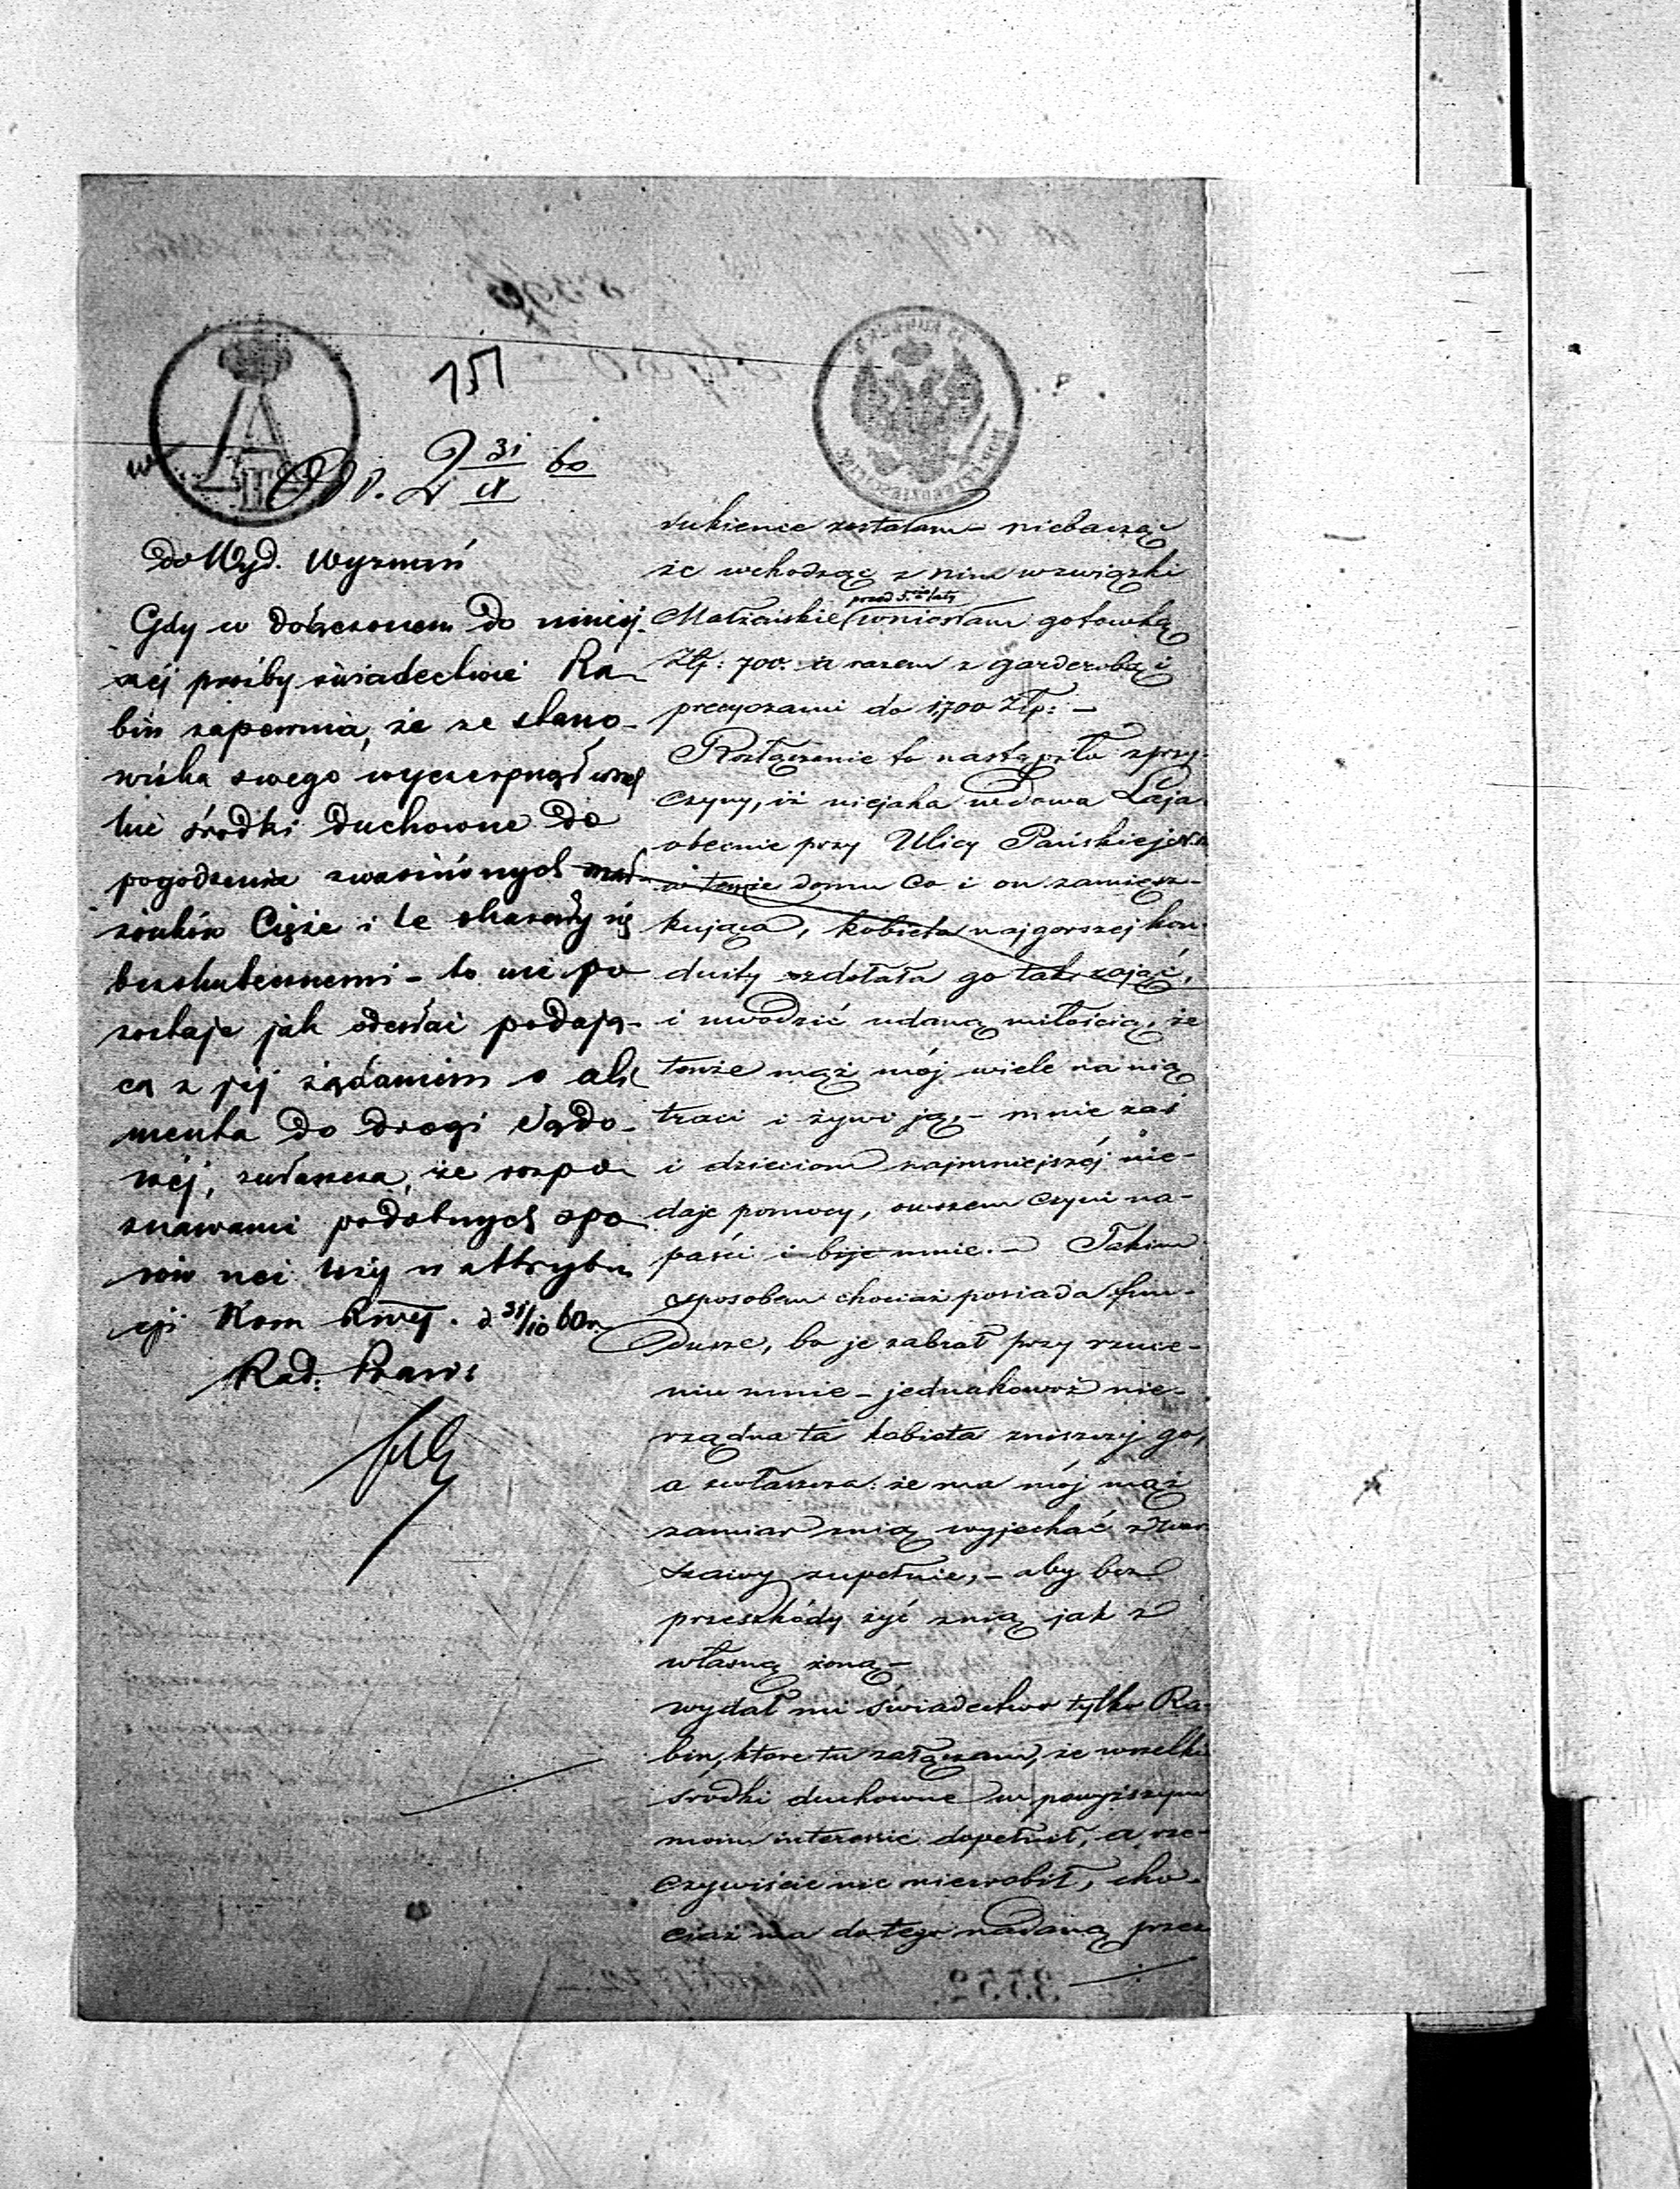 151
31
IX
60
Do Wyd. Wyznań
Gdy w dołączonem do niniej-
széj prośby świadectwie Ra-
bin zapewnia, że ze stano-
wiska swego wyczerpnął wszel
kie środki duchowne do
pogodzenia zwaśnionych mał-
żonków Ciąże i te okazały się
bezskutecznemi - to nie po
zostaje jak odesłać podają-
cą z jej żądaniem o ali
menta do drogi Sądo-
wéj, zwłaszcza, że rozpo
znawanie podobnych spo
rów nei leży w attrybu
cji Kom Rząd. d 31/10 60 r.
Rad. Praw:
sukience zostałam - niebacząc
że wchodząc z nim w związki
przed 5. laty
Małżeńskie wniosłam gotowką
Złp: 700. a razem z garderobą i
precyozami do 1,700 Złp: -
Rozłączenie to nastąpiło z przy-
czyny, iż niejaka wdowa Laja
obecnie przy Ulicy Pańskiej
w temże domu co i on zamiesz-
kująca, kobieta najgorszej kon-
duity zdołała go tak zająć,
i uwodzić udaną miłością, że
tenże mąż mój wiele na nią
traci i żywi ją, - mnie zaś
i dzieciom najmniejszéj nie-
daje pomocy, owszem czyni na-
paści i bije mnie. - Takim
sposobem chociaż posiada fun-
dusze, bo je zabrał przy rzuce-
niu mnie - jednakowoż nie-
rządna ta kobieta zniszczy go,
a zwłaszcza: że ma mój mąż
zamiar z nią wyjechać z War
szawy zupełnie, - aby bez
przeszkódy żyć z nią jak z
własną żoną -
wydał mi świadectwo tylko Ra-
bin, ktore tu załączam, że wszelki
środki duchowne w powyższym
moim interessie dopełnił, a rze-
czywiście nic nierobił, cho-
ciaż ma do tego nadaną przez